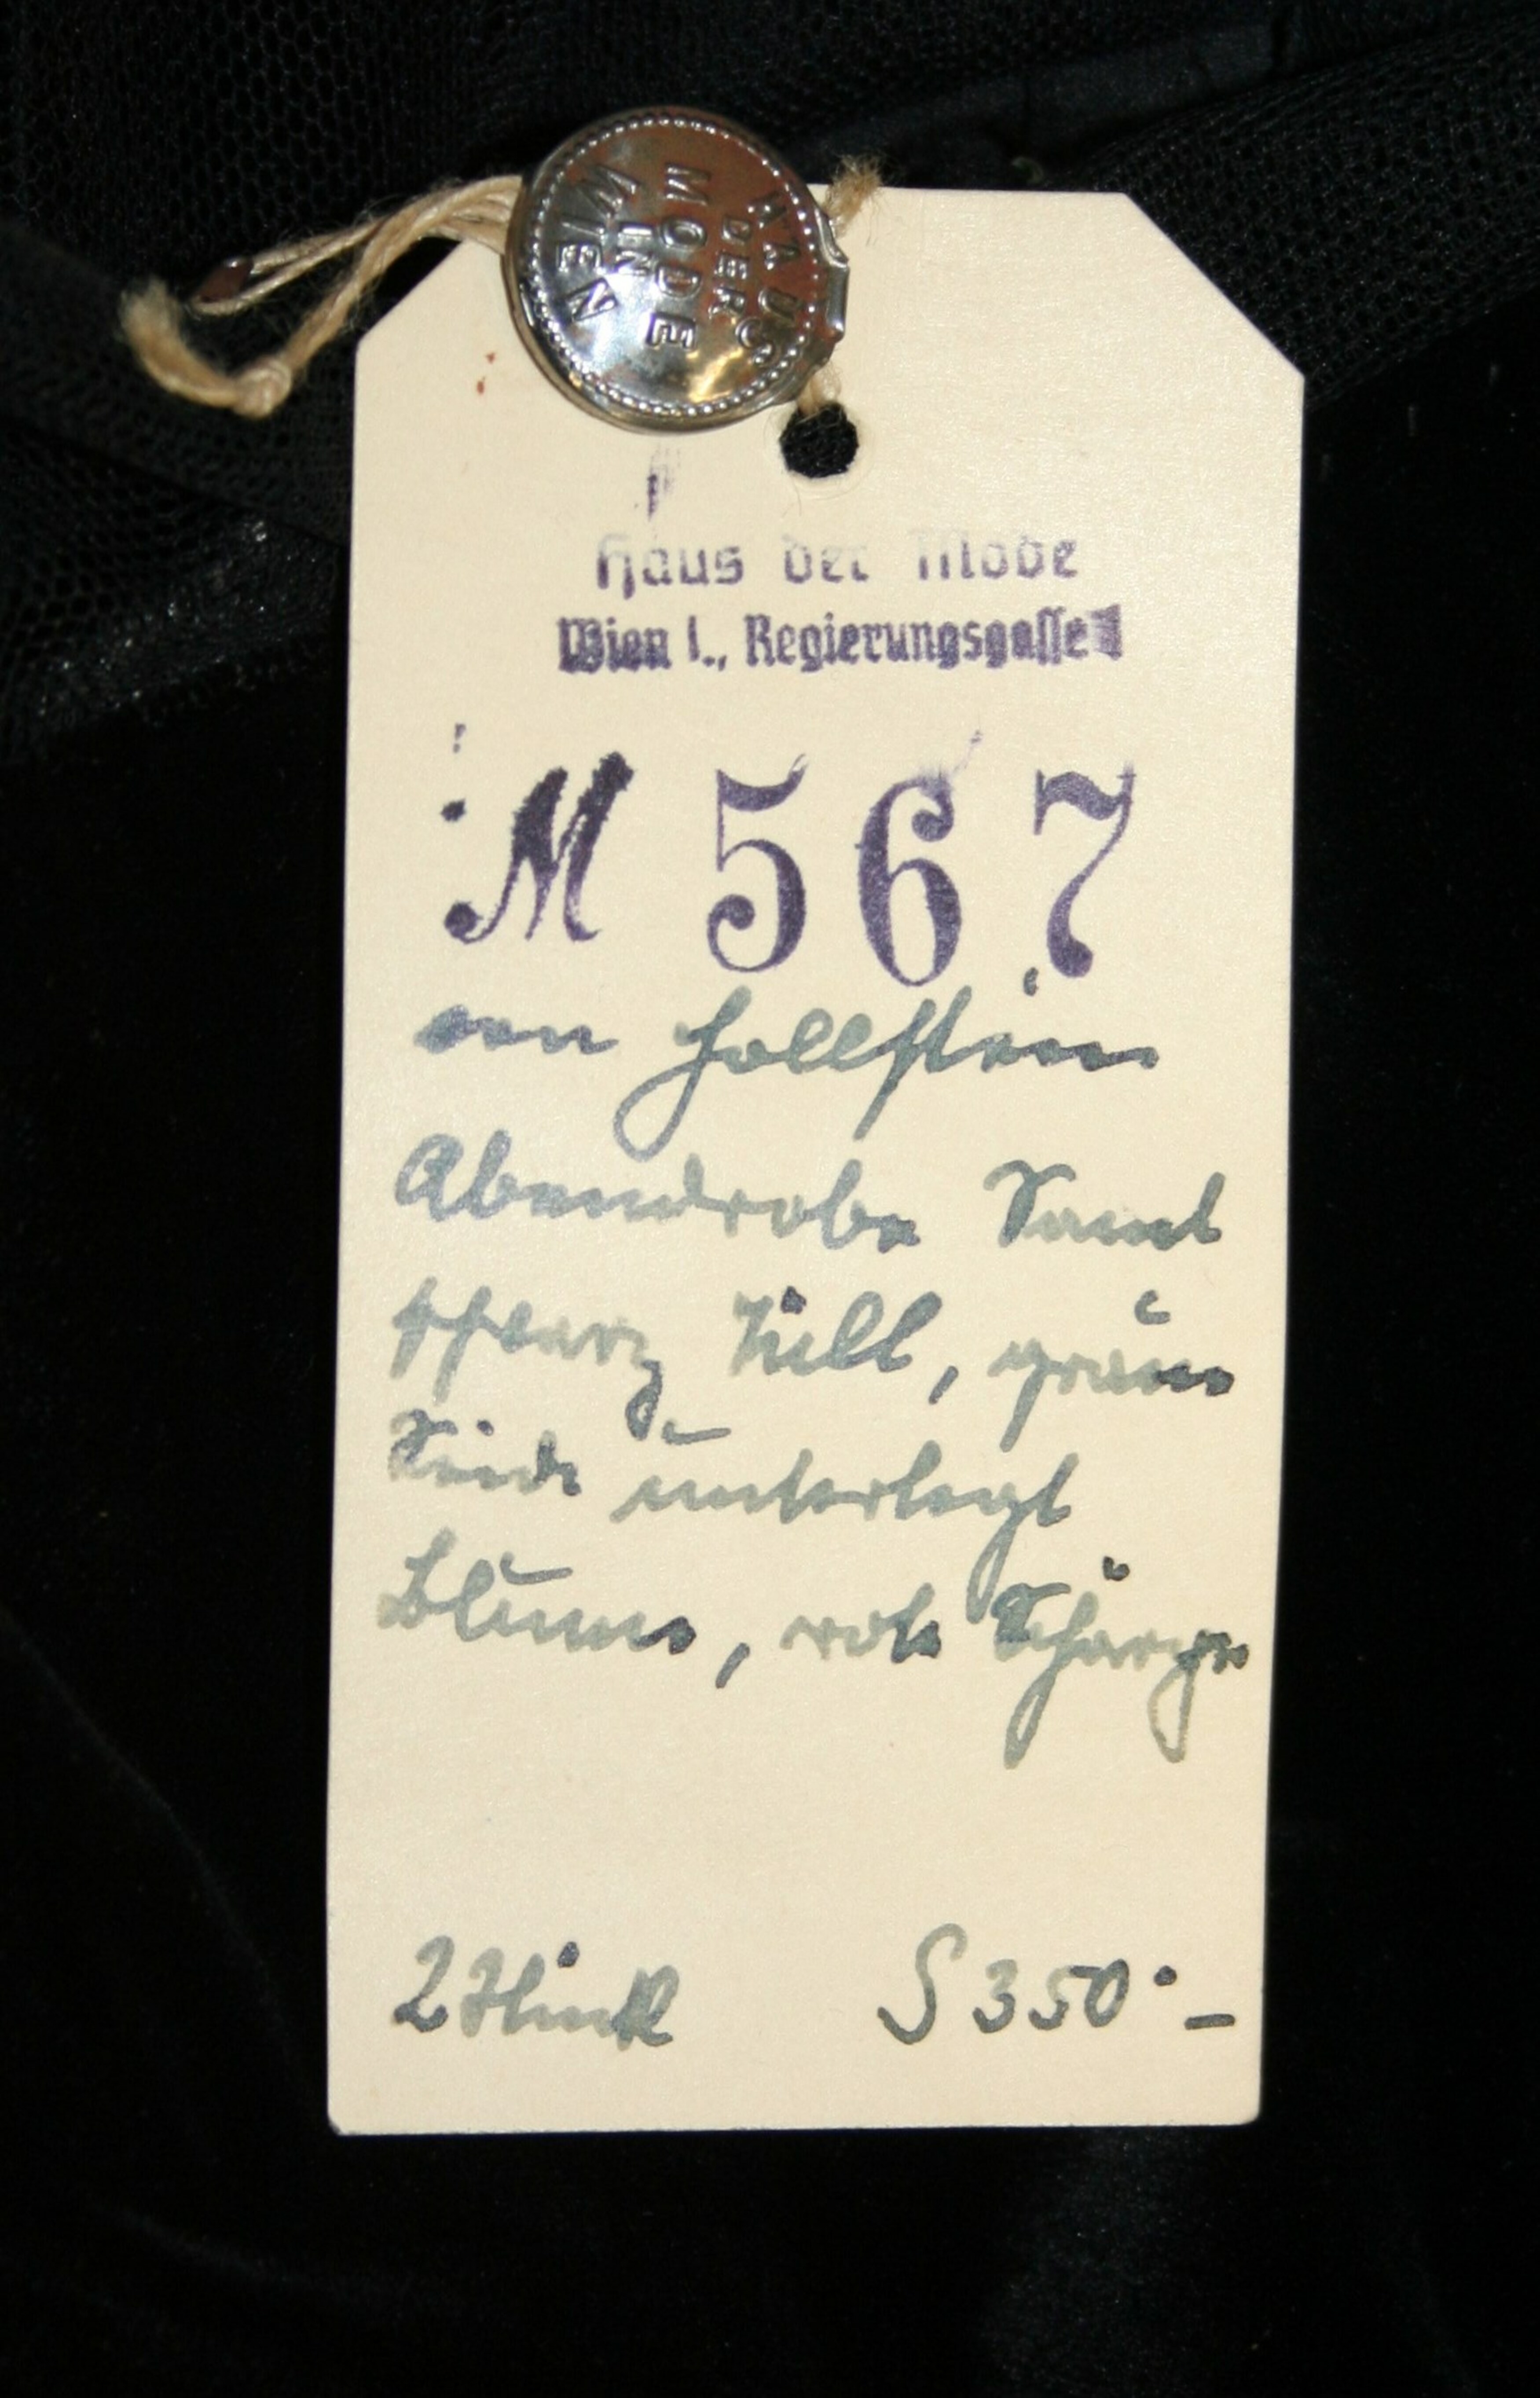 HAUS
DER
MODE
IN
WIEN
Haus der Mode
Wien I., Regierungsgasse 1
M 567
von Hollstein
Abendrobe Samt
schwarz Tüll, grüne
Seide unterlegt
Blume, rote Schärpe
2 Stück S 350·–